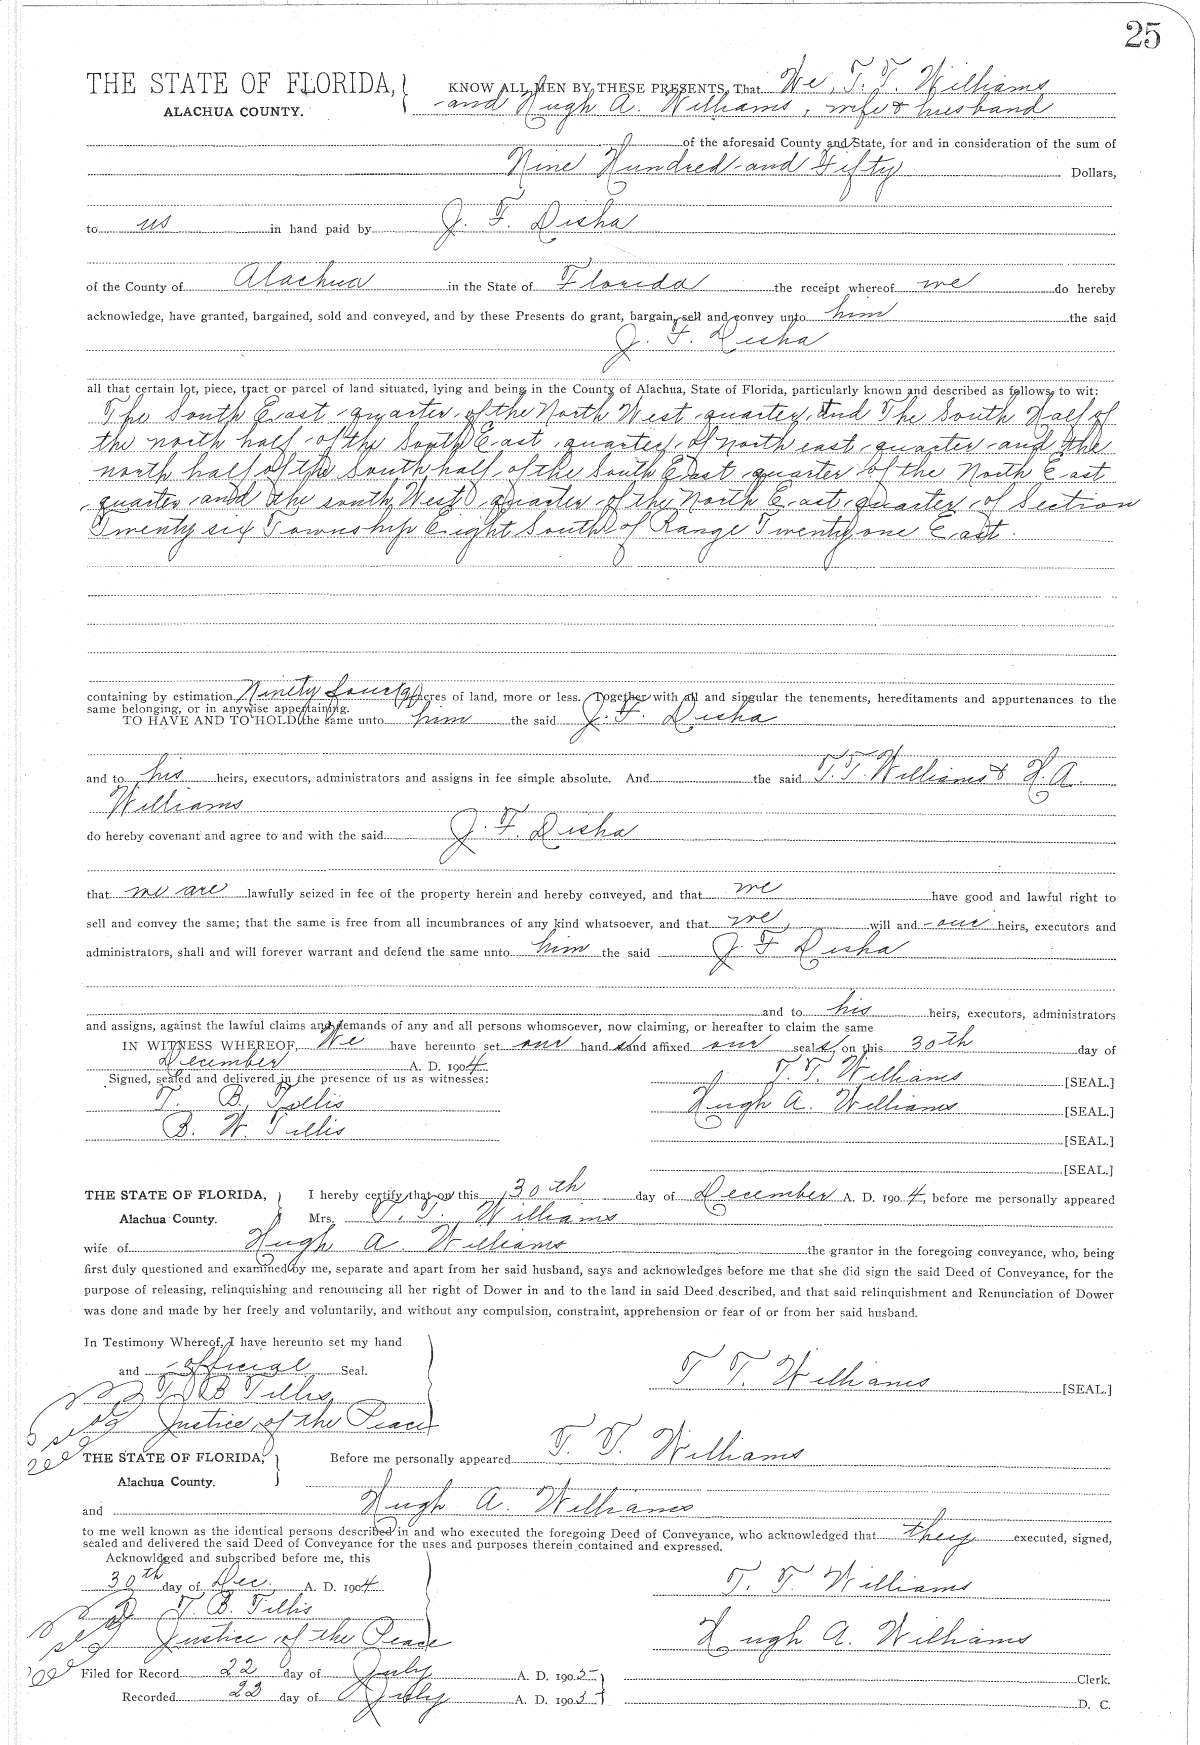 25
THE STATE OF FLORIDA, KNOW ALL MEN BY THESE PRESENTS, That We, T. T. Williams
ALACHUA COUNTY. and Hugh A. Williams, wife & husband
of the aforesaid County and State, for and in consideration of the sum of
Nine Hundred and Fifty Dollars,
to us in hand paid by J. F. Disha
of the County of Alachua in the State of Florida the receipt whereof we do hereby
acknowledge, have granted, bargained, sold and conveyed, and by these Presents do grant, bargain, sell and convey unto him the said
J. F. Disha
all that certain lot, piece, tract or parcel of land situated, lying and being in the County of Alachua, State of Florida, particularly known and described as follows, to wit:
The South East quarter of the North West quarter, and The South Half of
the north half of the South East quarter of North east quarter and the
north half of the South half of the South East quarter of the North East
quarter and the south West quarter of the North East quarter of Section
Twenty six Township Eight South of Range Twenty one East.
containing by estimation Ninety four acres of land, more or less. Together with all and singular the tenements, hereditaments and appurtenances to the
same belonging, or in anywise appertaining.
TO HAVE AND TO HOLD the same unto him the said J. F. Disha
and to his heirs, executors, administrators and assigns in fee simple absolute. And the said T. T. Williams & H. A.
Williams
do hereby covenant and agree to and with the said J. F. Disha
that we are lawfully seized in fee of the property herein and hereby conveyed, and that we have good and lawful right to
sell and convey the same; that the same is free from all incumbrances of any kind whatsoever, and that we will and our heirs, executors and
administrators, shall and will forever warrant and defend the same unto him the said J. F Disha
and to his heirs, executors, administrators
and assigns, against the lawful claims and demands of any and all persons whomsoever, now claiming, or hereafter to claim the same
IN WITNESS WHEREOF, We have hereunto set our hands and affixed our seals, on this 30th day of
December A. D. 1904.
Signed, sealed and delivered in the presence of us as witnesses: T. T. Williams [SEAL.]
T. B. Tillis Hugh A. Williams [SEAL.]
B. W. Tillis [SEAL.]
[SEAL.]
THE STATE OF FLORIDA, I hereby certify that on this 30th day of December A. D. 1904, before me personally appeared
Alachua County. Mrs. T. T. Williams
wife of Hugh A. Williams the grantor in the foregoing conveyance, who, being
first duly questioned and examined by me, separate and apart from her said husband, says and acknowledges before me that she did sign the said Deed of Conveyance, for the
purpose of releasing, relinquishing and renouncing all her right of Dower in and to the land in said Deed described, and that said relinquishment and Renunciation of Dower
was done and made by her freely and voluntarily, and without any compulsion, constraint, apprehension or fear of or from her said husband.
In Testimony Whereof, I have hereunto set my hand
and official Seal. T T. Williams [SEAL.]
T B Tillis
Justice of the Peace
THE STATE OF FLORIDA, Before me personally appeared T. T. Williams
Alachua County.
and Hugh A. Williams
to me well known as the identical persons described in and who executed the foregoing Deed of Conveyance, who acknowledged that they executed, signed,
sealed and delivered the said Deed of Conveyance for the uses and purposes therein contained and expressed.
Acknowldged and subscribed before me, this
30th day of Dec. A. D. 1904 T. T Williams
T. B. Tillis
Justice of the Peace Hugh A. Williams
Filed for Record 22 day of July A. D. 1905 Clerk.
Recorded 22 day of July A. D. 1905 D. C.